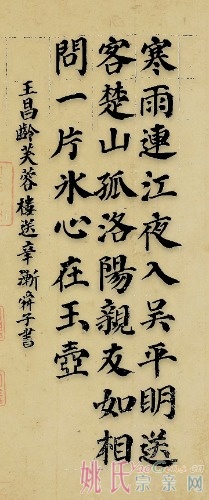 寒雨連江夜入吳平明送
客楚山孤洛陽親友如相
問一片氷心在玉壺
王昌齡芙蓉樓送辛漸 舜子書
姚氏
宗亲网